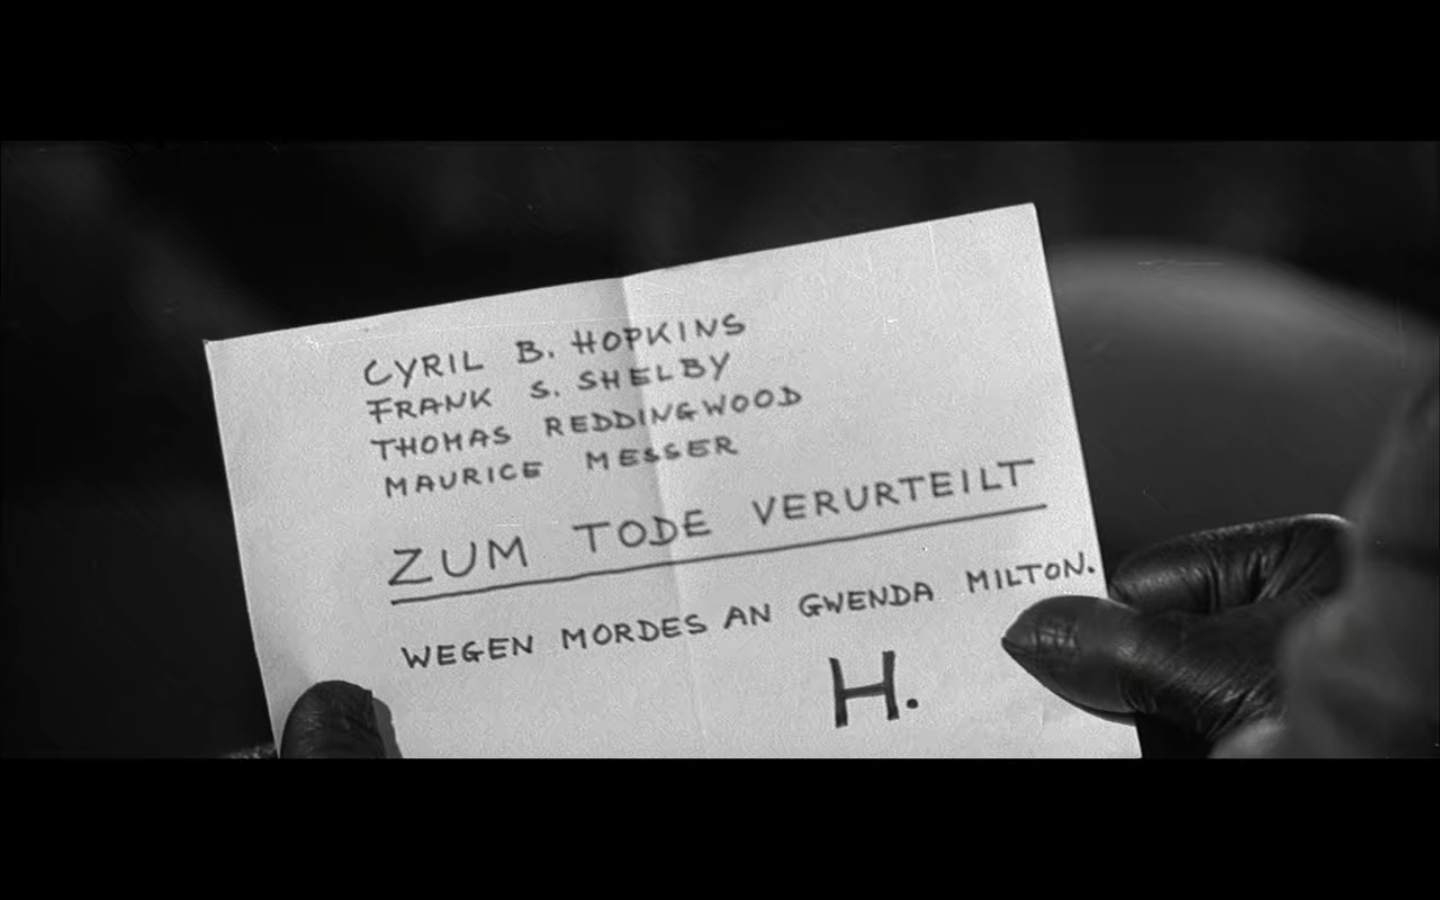 CYRIL B. HOPKINS
FRANK S. SHELBY
THOMAS REDDINGWOOD
MAURICE MESSER
ZUM TODE VERURTEILT
WEGEN MORDES AN GWENDA MILTON.
H.